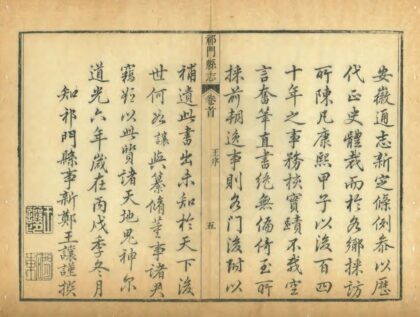 安徽通志新定條例參以歷
代正史體裁而於各鄉採訪
所陳凡康熙甲子以後百四
十年之事務核實蹟不載空
言奮筆直書絶無偏倚至所
採前朝逸事則各門後附以
祁門縣志
卷首
王序
五
補遺此書出未知於天下後
世何如讓與纂脩董事諸君
竊以此質諸天地鬼神爾
道光六年歲在丙戌季冬月
知祁門縣事新鄭王讓謹撰